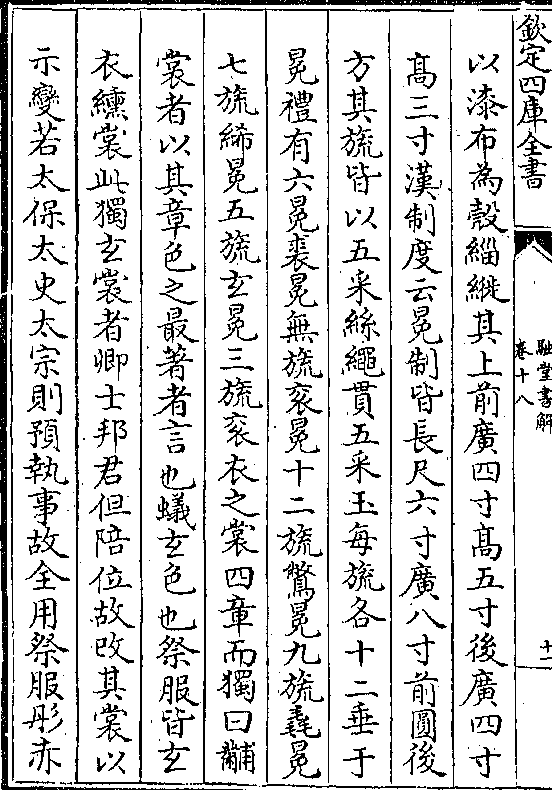 欽定四庫全書
融堂書解
卷十八
十一
以漆布為殼緇縰其上前廣四寸高五寸後廣四寸
高三寸漢制度云冕制皆長尺六寸廣八寸前圓後
方其旒皆以五采絲繩貫五采玉每旒各十二垂于
冕禮有六冕裘冕無旒衮冕十二旒鷩冕九旒毳冕
七旒絺冕五旒玄冕三旒衮衣之裳四章而獨曰黼
裳者以其章色之最著者言也蟻玄色也祭服皆玄
衣纁裳此獨玄裳者卿士邦君但陪位故改其裳以
示變若太保太史太宗則預執事故全用祭服彤赤